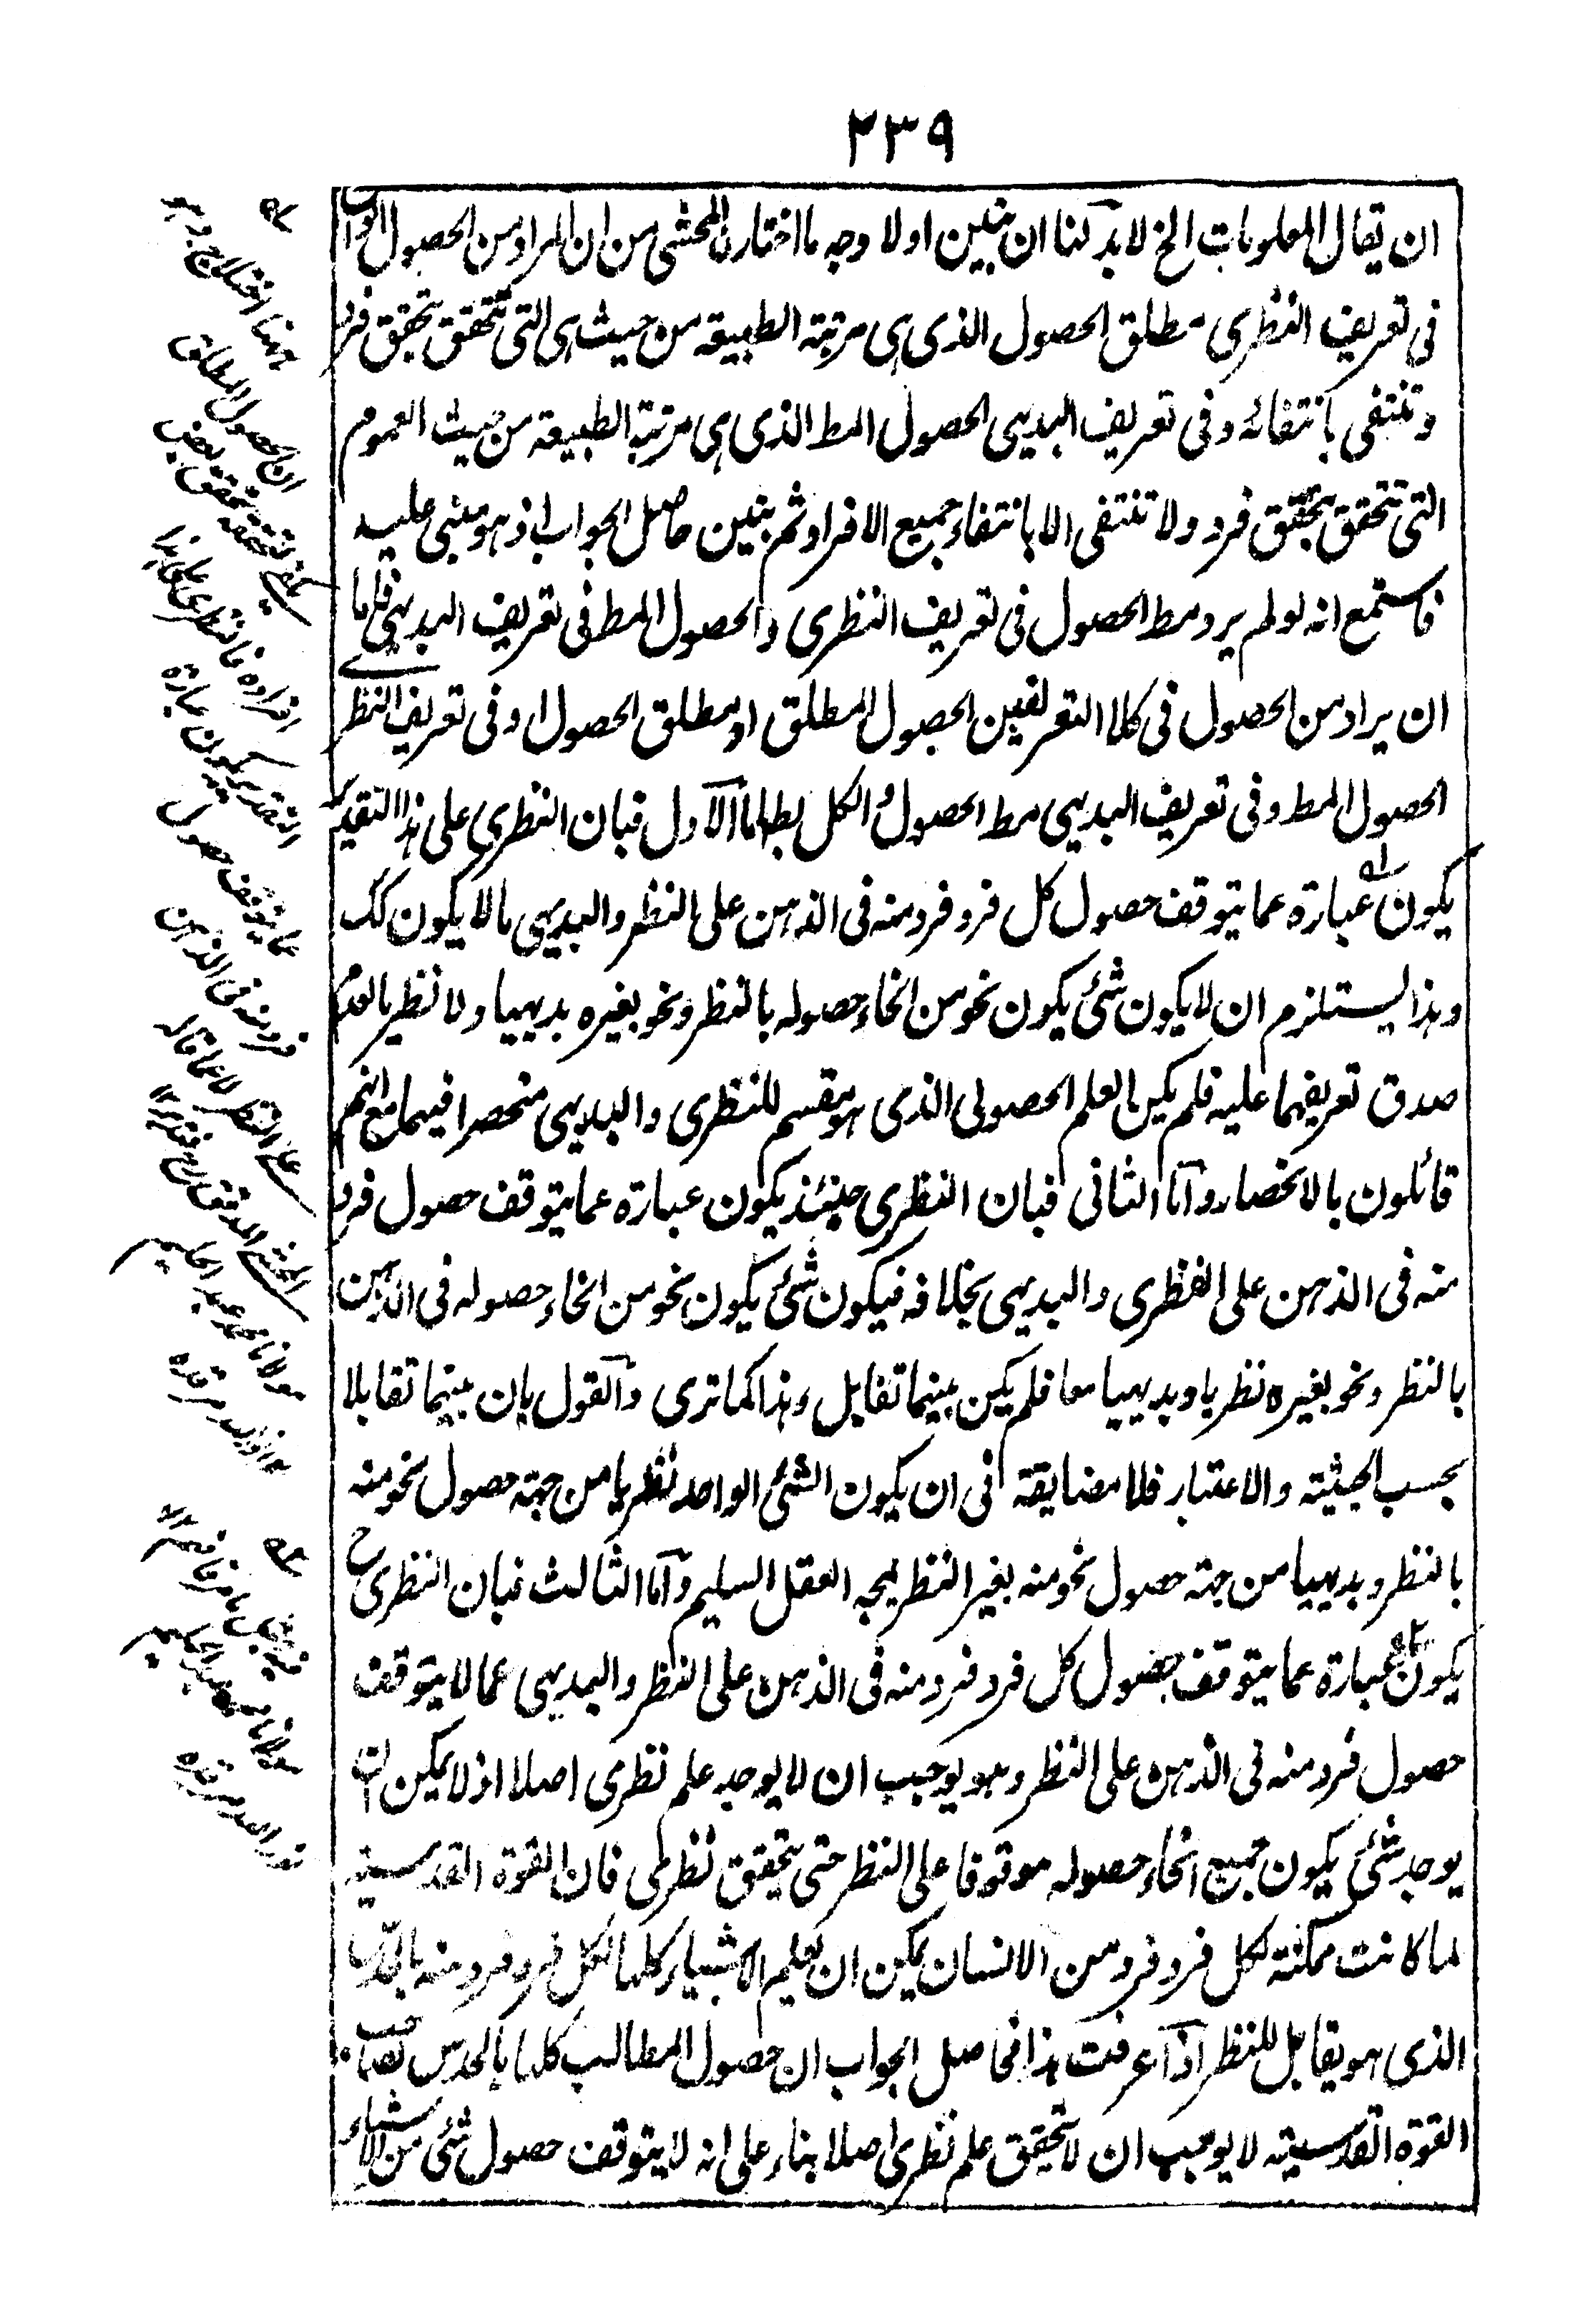 ٢٣٩
ان يقال المعلومات الخ لا بد لنا ان نبين اولا وجه ما اختاره المحشى من ان المراد من الحصول الواقع
فى تعريف النظرى مطلق الحصول الذى هى مرتبة الطبيعة من حيث هى التى تتحقق بتحقق فرد
وتنتفى بانتفائه وفى تعريف البديهى الحصول المط الذى هى مرتبة الطبيعة من حيث العموم
التى تتحقق بتحقق فرد ولا تنتفى الا بانتفاء جميع الافراد ثم نبين حاصل الجواب اذ هو مبنى عليه
فاستمع انه لو لم يرد مط الحصول فى تعريف النظرى والحصول المط فى تعريف البديهى فاما
ان يراد من الحصول فى كلا التعريفين الحصول المطلق او مطلق الحصول او فى تعريف النظرى
الحصول المط وفى تعريف البديهى مط الحصول والكل بط اما الاول فبان النظرى على هذا التقدير
يكون عبارة عما يتوقف حصول كل فرد فرد منه فى الذهن على النظر والبديهى ما لا يكون كك
وهذا يستلزم ان لا يكون شئ يكون نحو من انحاء حصوله بالنظر ونحو بغيره بديهيا ولا نظريا لعدم
صدق تعريفهما عليه فلم يكن العلم الحصولى الذى هو مقسم للنظرى والبديهى منحصرا فيهما مع انهم
قائلون بالانحصار واما الثانى فبان النظرى حينئذ يكون عبارة عما يتوقف حصول فرد
منه فى الذهن على النظرى والبديهى بخلافه فيكون شئ يكون نحو من انحاء حصوله فى الذهن
بالنظر ونحو بغيره نظريا وبديهيا معا فلم يكن بينهما تقابل وهذا كما ترى والقول بان بينهما تقابلا
بحسب الحيثية والاعتبار فلا مضايقة فى ان يكون الشئ الواحد نظريا من جهة حصول نحو منه
بالنظر وبديهيا من جهة حصول نحو منه بغير النظر يمجه العقل السليم واما الثالث فبان النظرى ح
يكون عبارة عما يتوقف حصول كل فرد فرد منه فى الذهن على النظر والبديهى عما لا يتوقف
حصول فرد منه فى الذهن على النظر وهو يوجب ان لا يوجد علم نظرى اصلا اذ لا يمكن ان
يوجد شئ يكون جميع انحاء حصوله موقوفا على النظر حتى يتحقق نظرى فان القوة القدسية
لما كانت ممكنة لكل فرد فرد من الانسان يمكن ان يعلم الاشياء كلها لكل فرد فرد منه بالحدس
الذى هو يقابل للنظر اذا عرفت هذا فحاصل الجواب ان حصول المطالب كلها بالحدس لصاحب
القوة القدسية لا يوجب ان لا يتحقق علم نظرى اصلا بناء على انه لا يتوقف حصول شئ من الاشياء
ههنا اختلاج وهو
ان الحصول المطلق
يكفى لتحققه تحقق بعض
افراده فالنظرى على هذا
التقدير يكون عبارة
عما يتوقف حصول
فرد منه فى الذهن
على النظر لا ما قاله
المحشى المدقق
مولانا محمد عبد الحليم
نور الله مرقده
مولانا محمد عبد الحليم
نور الله مرقده